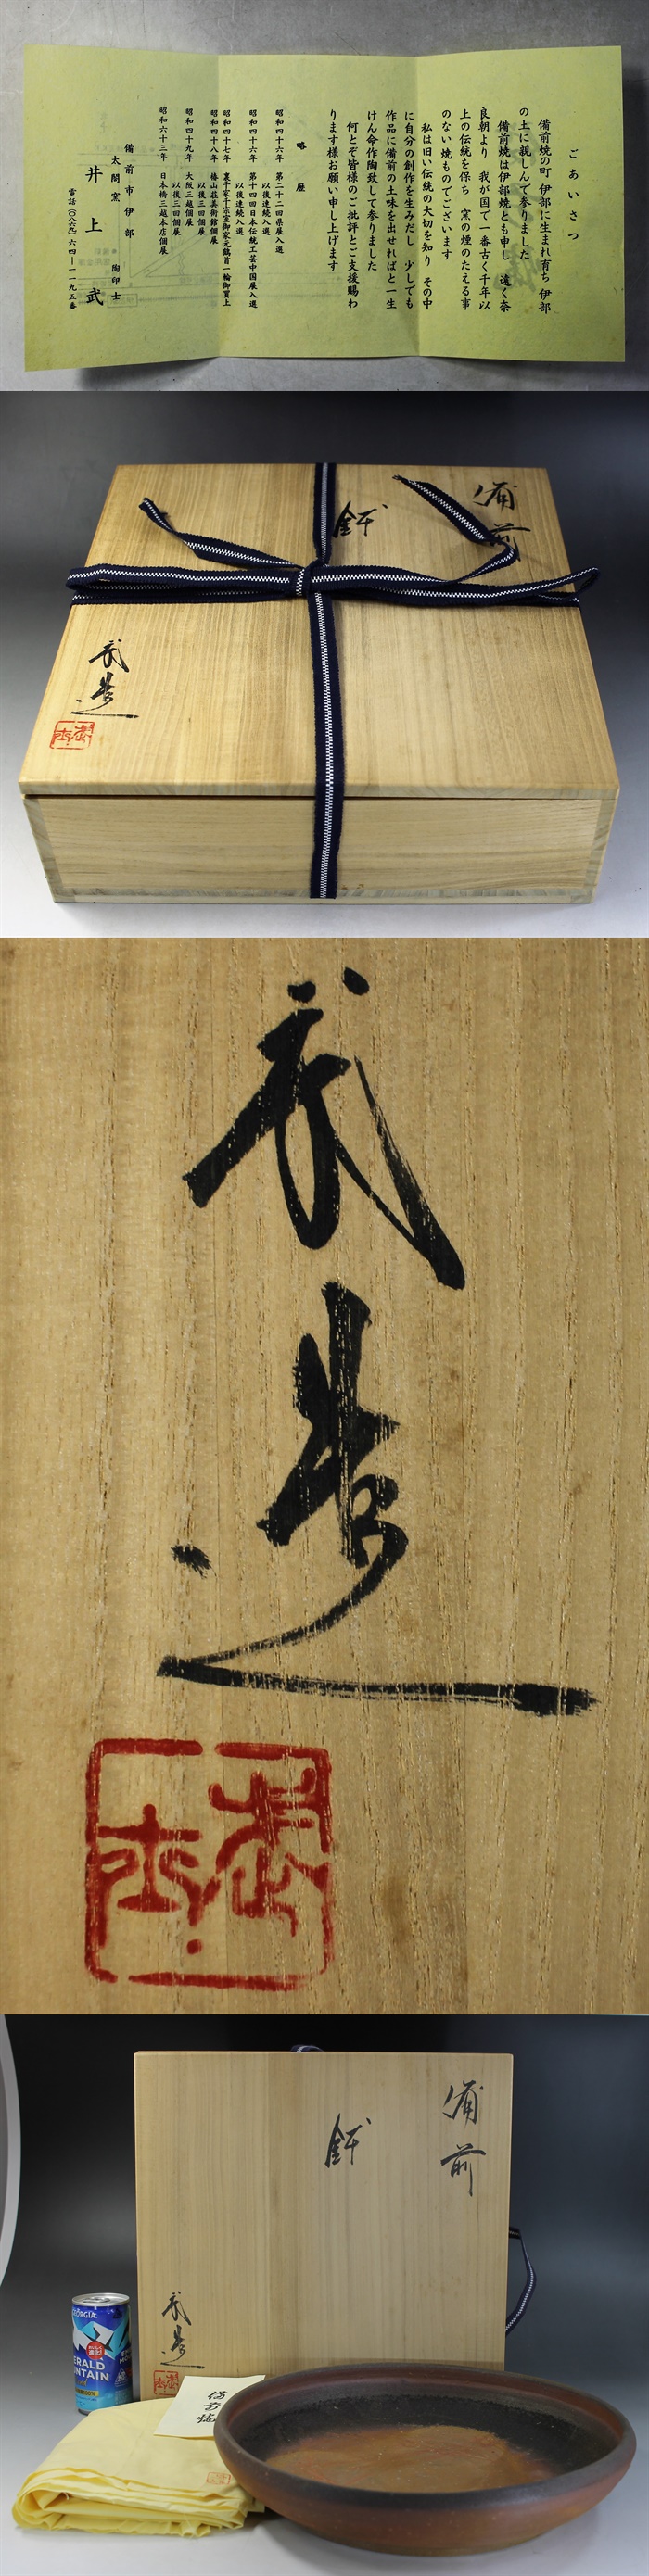 ごあいさつ
備前焼の町 伊部に生まれ育ち 伊部
の土に親しんで参りました
備前焼は伊部焼とも申し 遠く奈
良朝より 我が国で一番古く千年以
上の伝統を保ち 窯の煙のたえる事
のない焼ものでございます
私は旧い伝統の大切を知り その中
に自分の創作を生みだし 少しでも
作品に備前の土味を出せればと一生
けん命作陶致して参りました
何とぞ皆様のご批評とご支援賜わ
ります様お願い申し上げます
略歴
昭和四十六年 第二十二回県展入選
以後連続入選
昭和四十六年 第十四回日本伝統工芸中国展入選
以後連続入選
昭和四十七年 裏千家千宗室御家元鶴首一輪御買上
昭和四十八年 椿山荘美術館個展
以後三回個展
昭和四十九年 大阪三越個展
以後三回個展
昭和六十三年 日本橋三越本店個展
備前市伊部
太閤窯 陶印士
井上 武
電話(〇八六九)六四―一一九五番
備前
鉢
武造
武造
備前
鉢
武造
GEORGIA
EMERALD
MOUNTAIN
備前焼